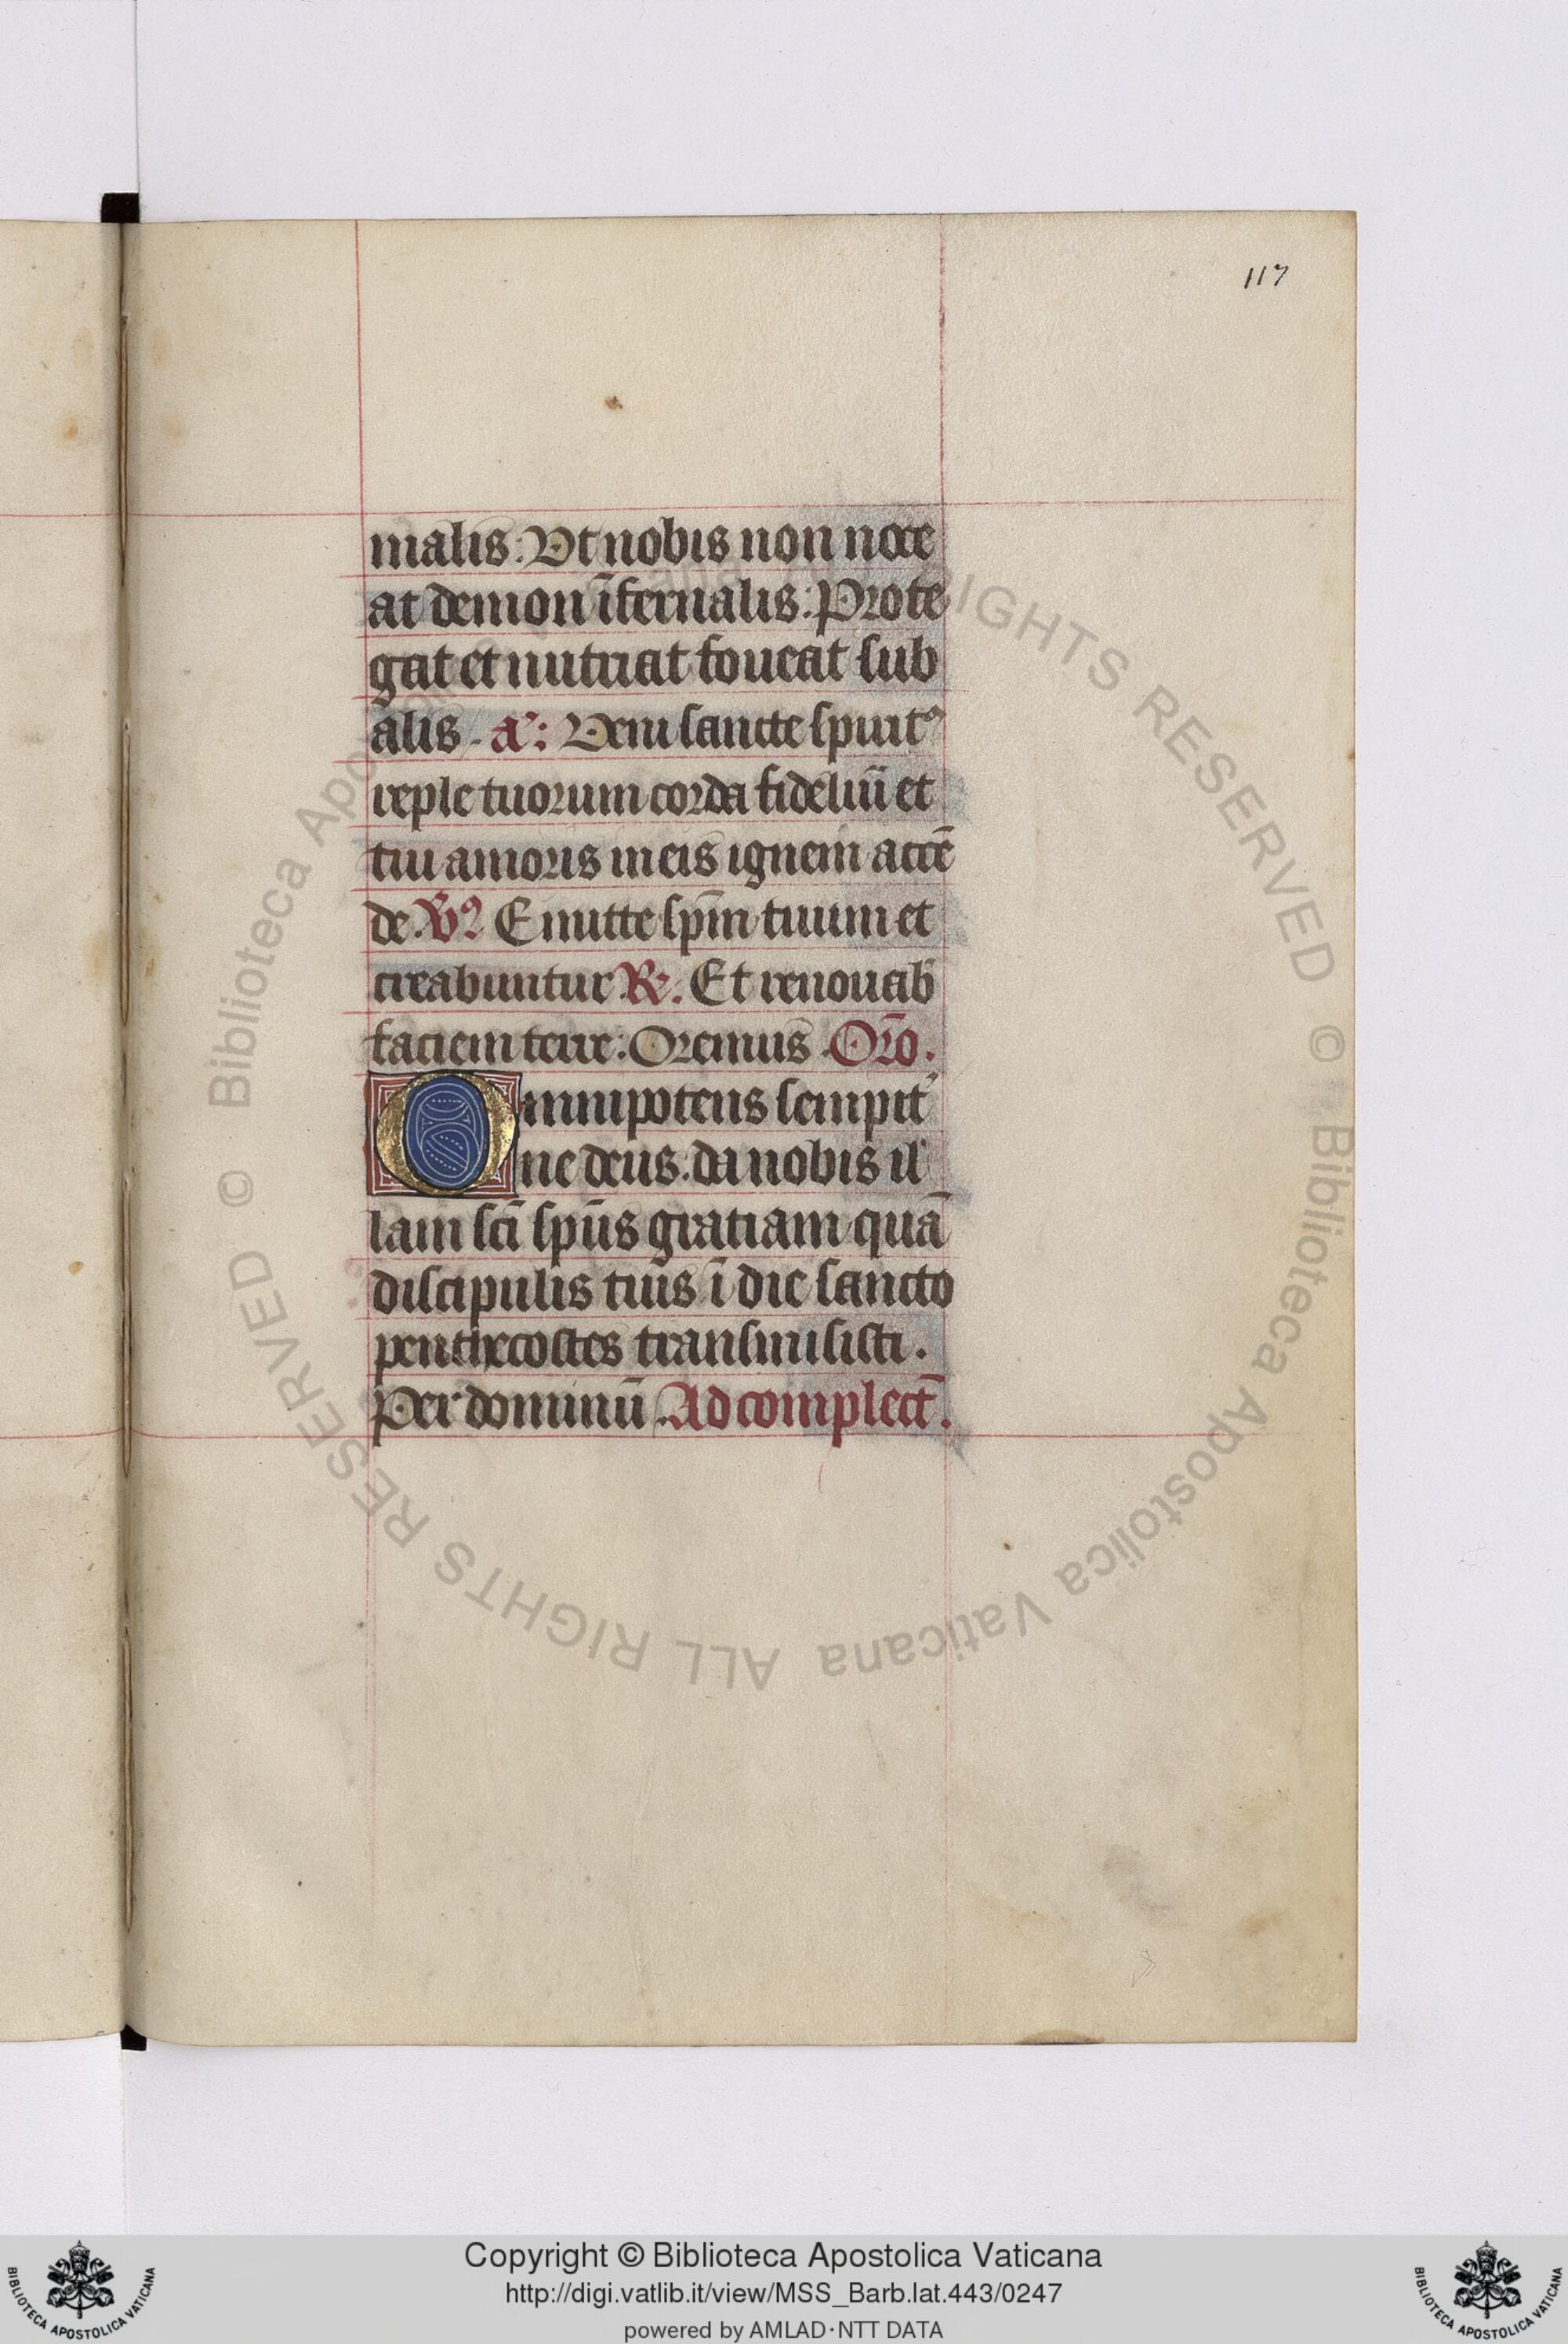 117
malis: Vt nobis non noce
at demon īfernalis: Prote
gat et nutriat foueat sub
alis. a᷒: Veni sancte spirit᷒
reple tuorum corda fideliū et
tui amoris in eis ignem accē
de. V᷒ Emitte sp̄m tuum et
creabuntur R̷. Et renouab̓
faciem terre: Oremus Or̄o.
Omnipotens sempit̓
ne deus: da nobis il
lam sc̄i sp̄us gratiam quā
discipulis tuis ī die sancto
penthecostes transmisisti.
Per dominū. Ad complect̄.
© Biblioteca Apostolica Vaticana ALL RIGHTS RESERVED © Biblioteca Apostolica Vaticana ALL RIGHTS RESERVED
Copyright © Biblioteca Apostolica Vaticana
http://digi.vatlib.it/view/MSS_Barb.lat.443/0247
powered by AMLAD·NTT DATA
BIBLIOTECA APOSTOLICA VATICANA
BIBLIOTECA APOSTOLICA VATICANA